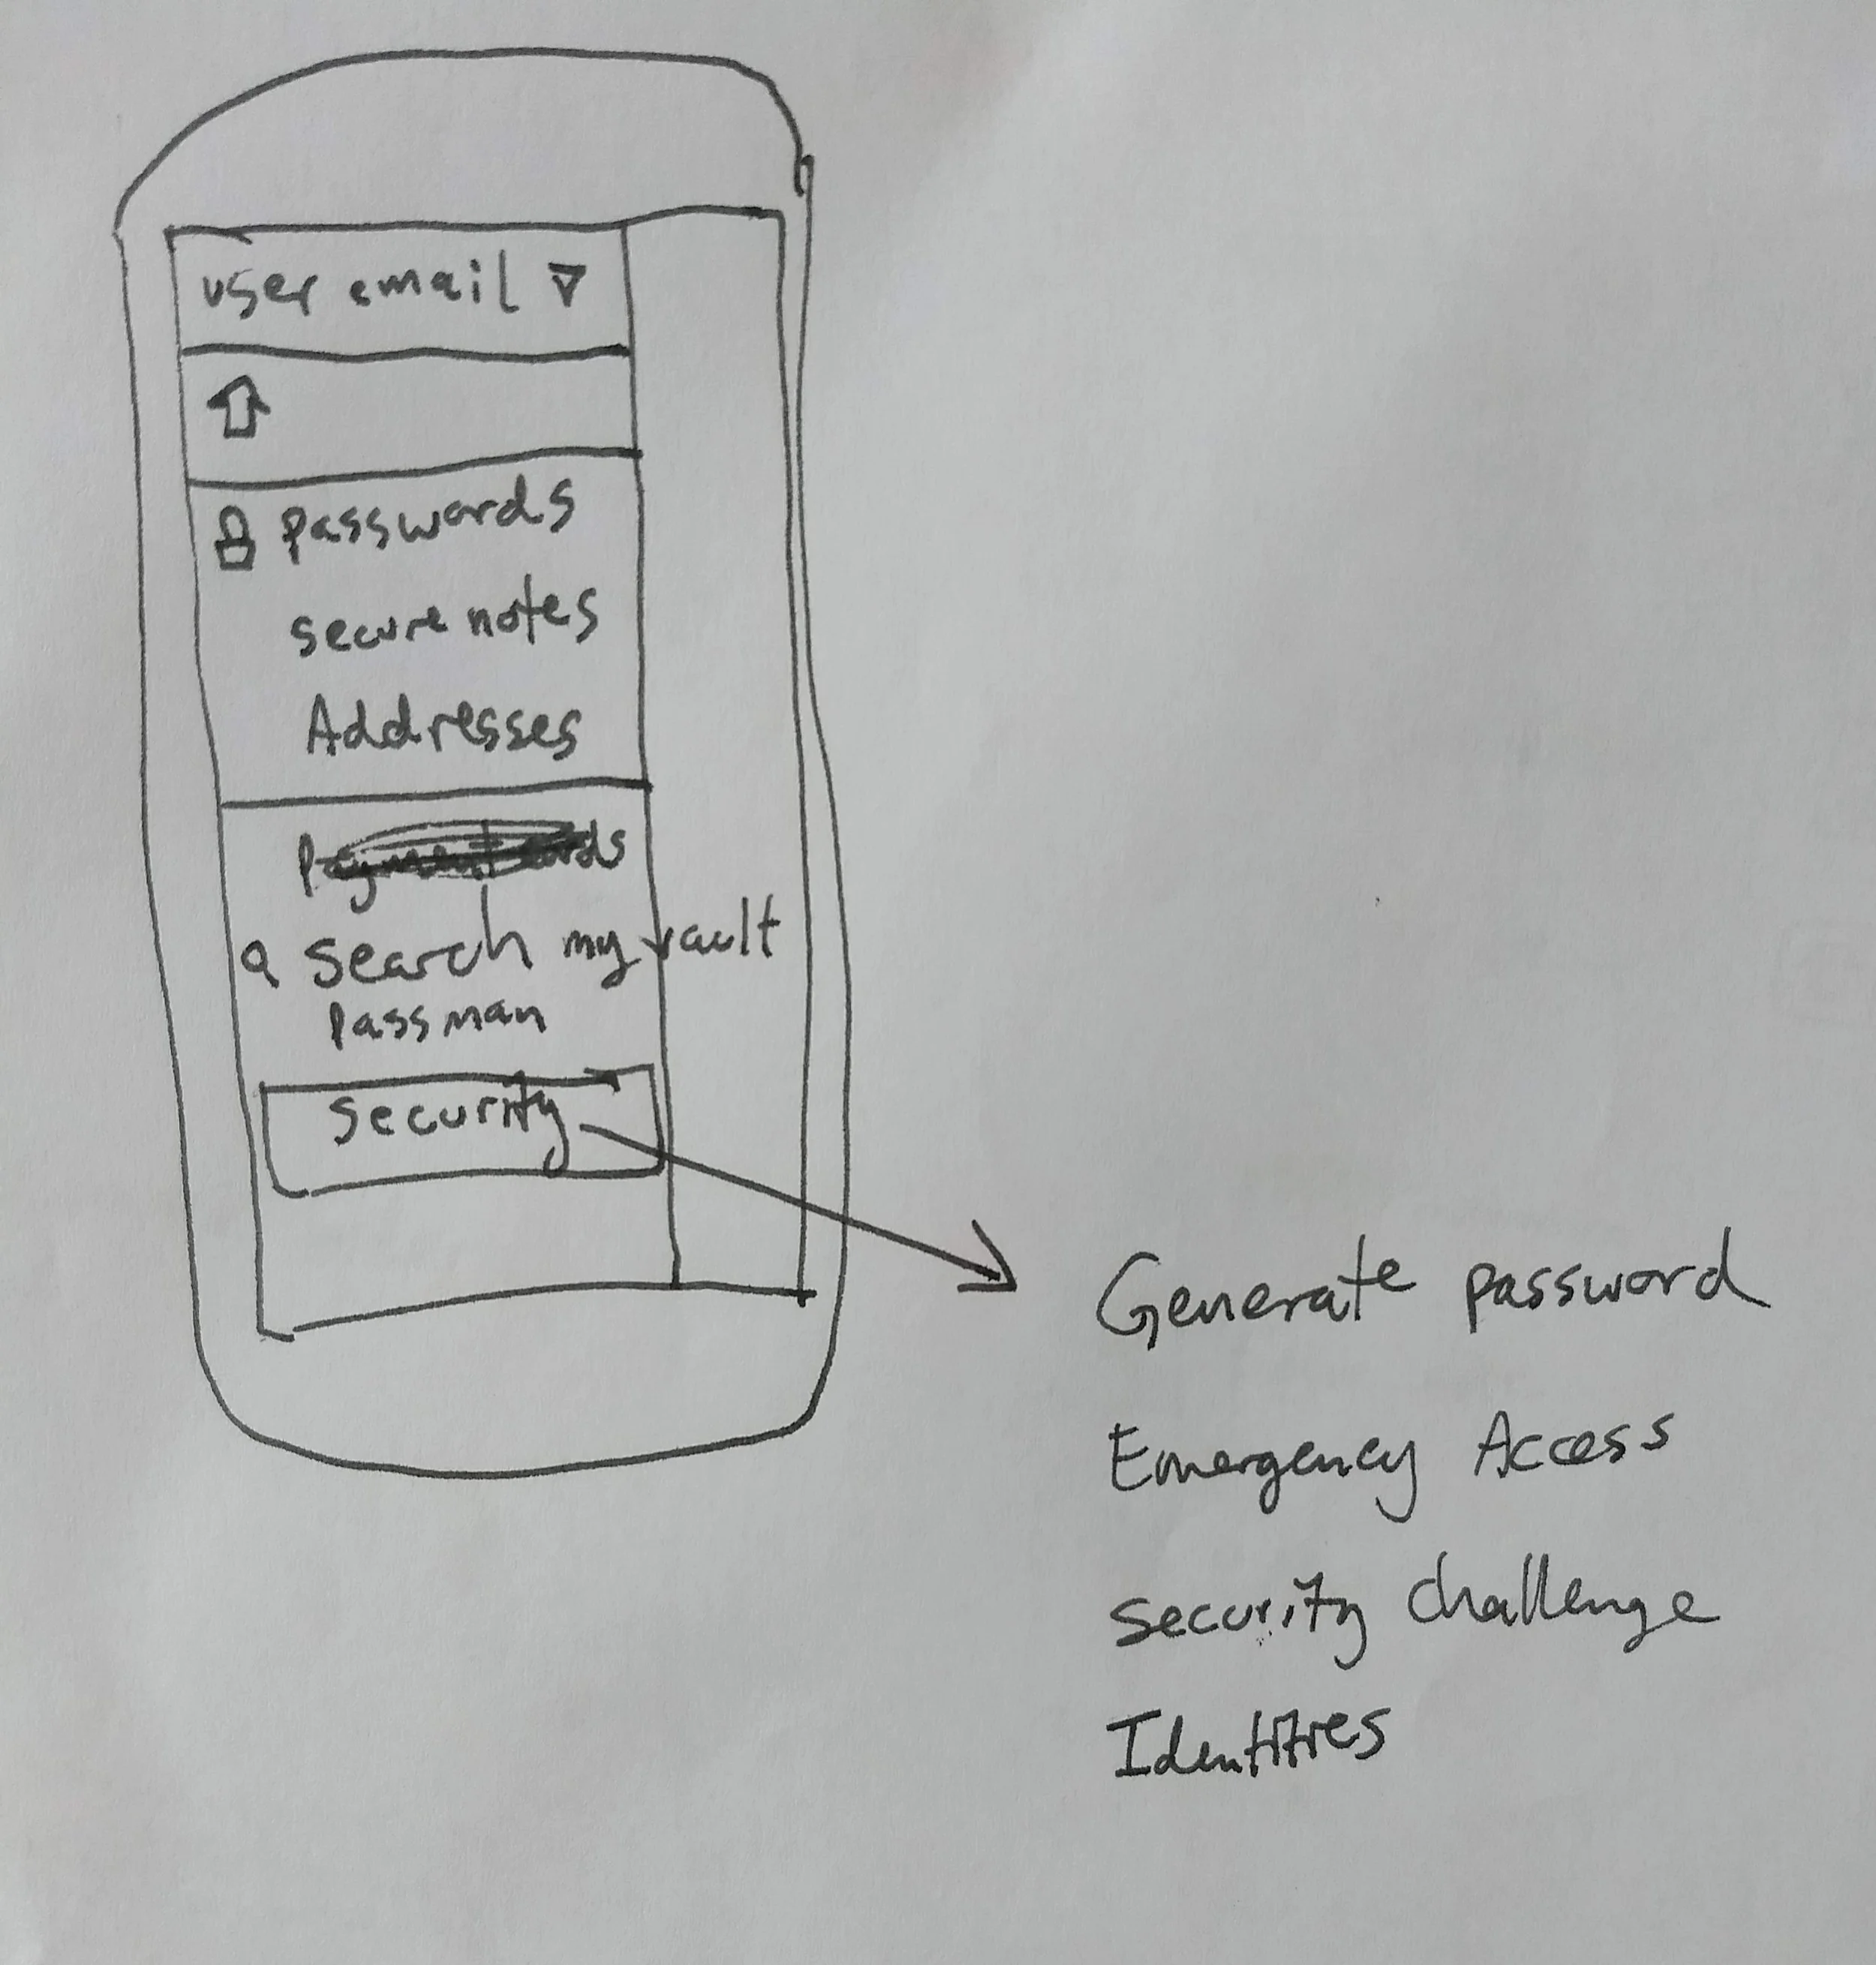 user email
passwords
secure notes
Addresses
Search my vault
Passman
Security
Generate password
Emergency Access
security challenge
Identities